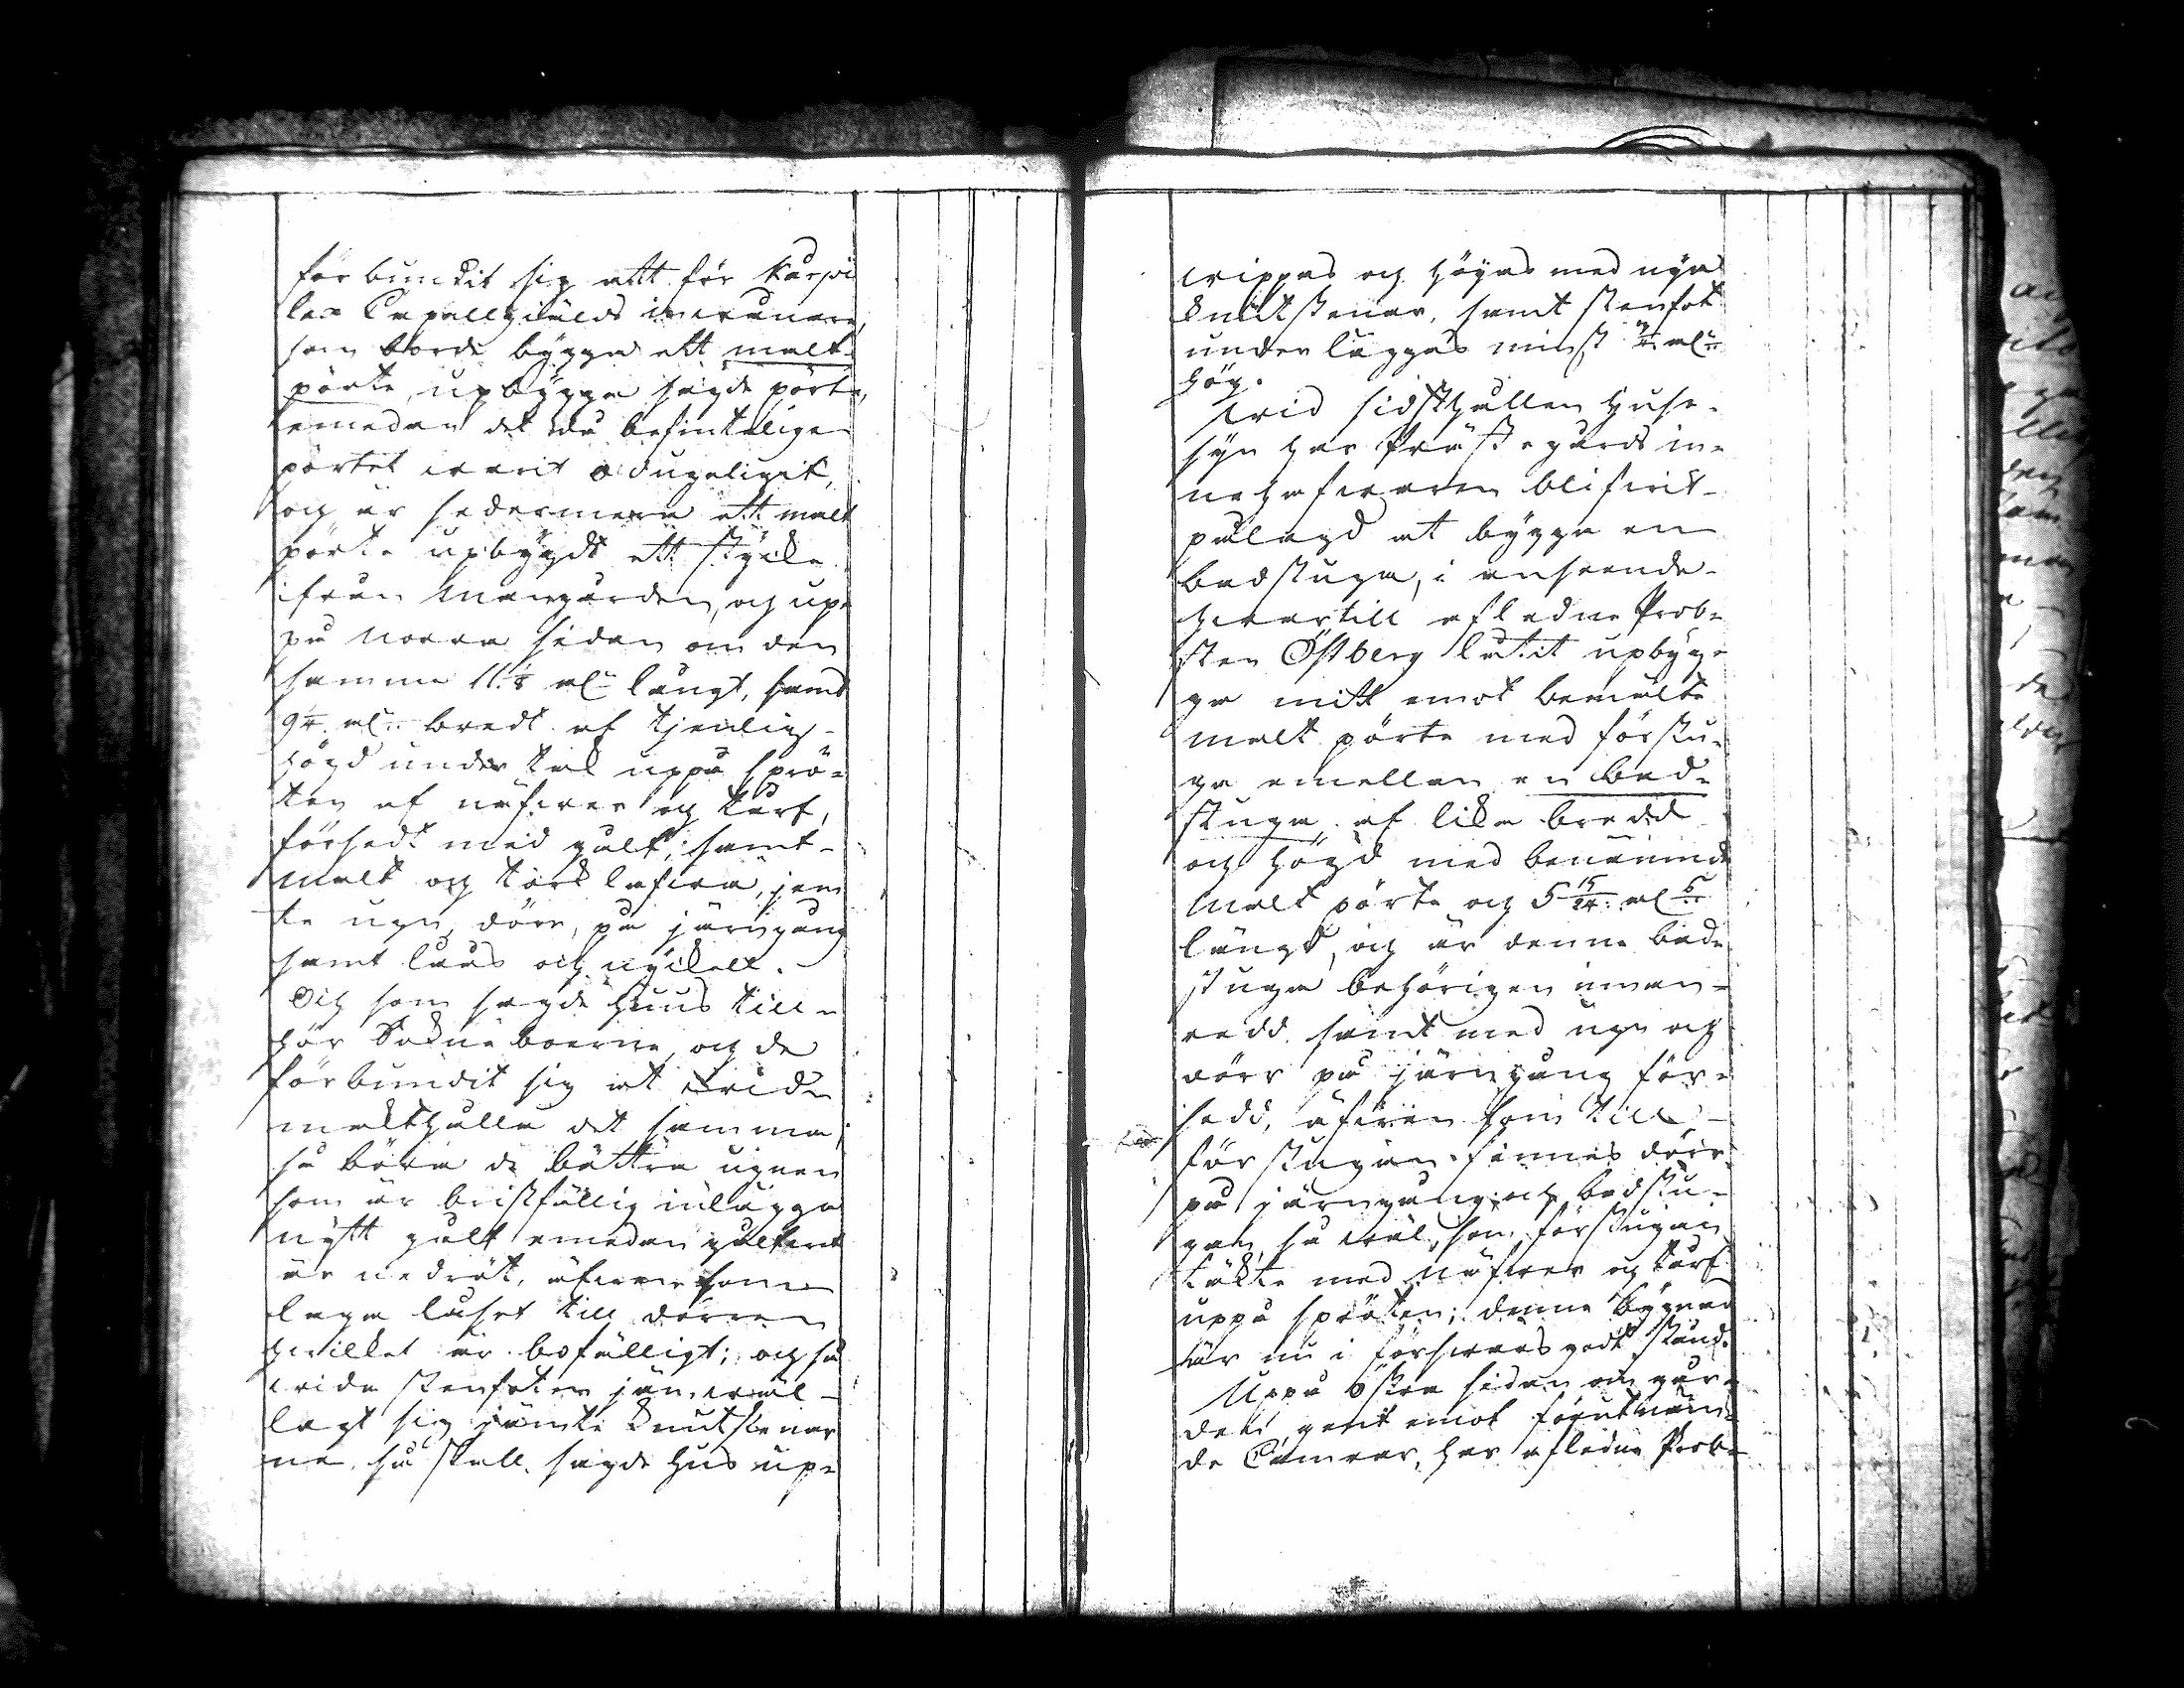 förbundit sig att för Karsä
lax Capellgiälds inwånare,
som borde bygga ett malt-
pörte upbygga sagde pörte,
emedan det då befinteliga
pörtet warit odugeligit,
och är sedermera ett malt
pörte upbygdt ett stycke
ifrån Mangården, och up-
på norra sidan om den
samma 11 1/8 aln långt, samt
9 1/4 aln bredt af tjenlig
högd under tak uppå sprö-
ten af näfwer och torf,
försedt med golf, samt
malt och tork lafwa, jem
te ugn, dörr, på järngång
samt låås och nyckell.
Och som sagde huus till-
hör Sokneboerne, och de
förbundit sig at wid-
magthålla det samma,
så böra de bättra ugnen
som är bristfällig inlägga
nytt golf emedan golfwet
är nedröt, äfwen som
laga låset till dörren
hwilket är bofälligt; och så
wida stenfoten jämwäl
lagt sig jämte knutstenar
ne, så skall sagde hus up-
wippas och höyas med nya
knutstenar, samt stenfot
under läggas minst aln
hög.
Wid sidsthållen huse-
syn har Prästegårds in-
nehafwaren blifwit
pålagd at bygga en
badstuga, i anseende
hwartill afledne Prob-
sten Östberg låtit upbyg-
ga mitt emot bemälte
malt pörte med förstu-
ga emellan en bad-
stuga af lika bredd
och högd med benämnde
Malt pörte och 5 15/24 aln
långt, och är denne bad-
stuga behörigen inan-
redd samt med ugn och
dörr på järngång för-
sedd, äfwen som till
förstugan finnes dörr
på järngång och badstu-
gan, så wäl som förstugan
täkte med näfwer och torf
uppå spröten; denne bygnad
är nu i förswars godt stånd.
Uppå östra sidan om går-
den, gent emot förutnäm-
de Camrar, har afledne Prob-